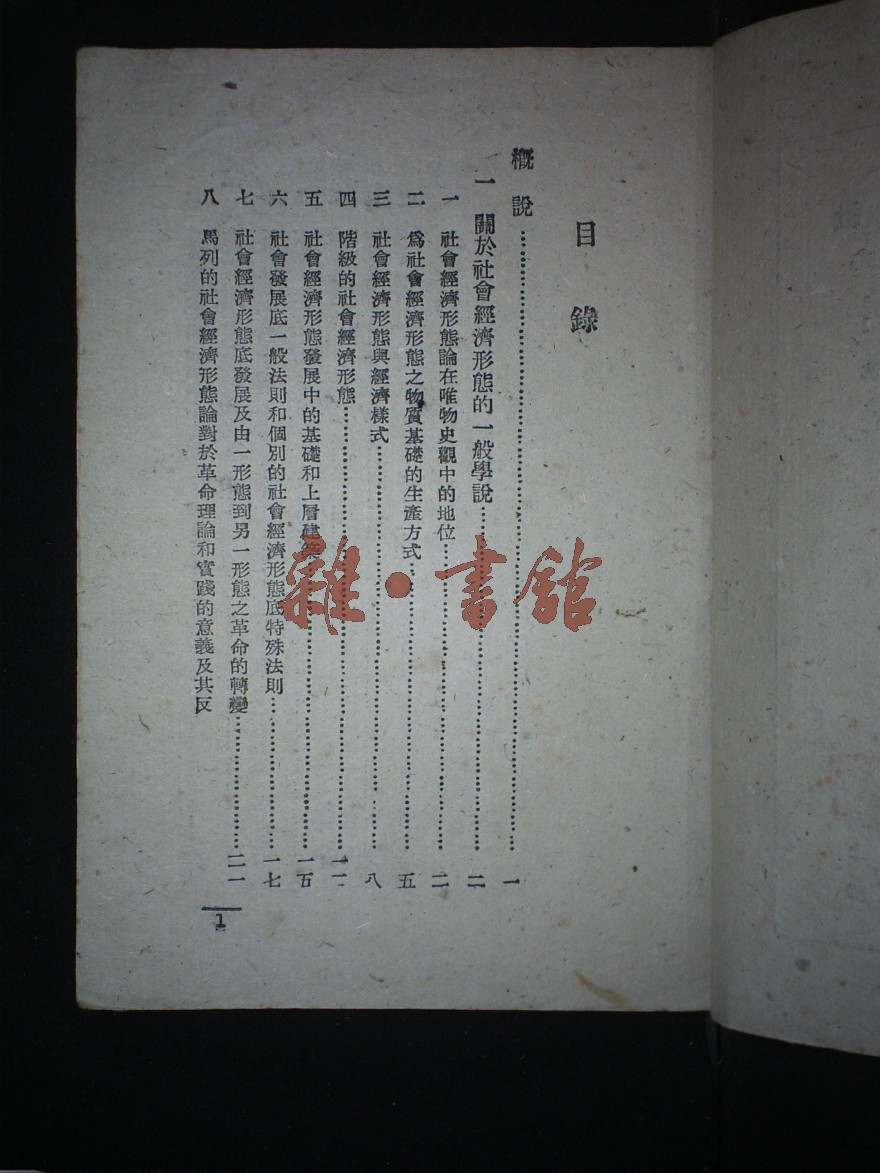 目錄
概說……一
一 關於社會經濟形態的一般學說……二
一 社會經濟形態論在唯物史觀中的地位……二
二 爲社會經濟形態之物質基礎的生產方式……五
三 社會經濟形態與經濟樣式……八
四 階級的社會經濟形態……一一
五 社會經濟形態發展中的基礎和上層建築……一五
六 社會發展底一般法則和個別的社會經濟形態底特殊法則……一七
七 社會經濟形態底發展及由一形態到另一形態之革命的轉變……二一
八 馬列的社會經濟形態論對於革命理論和實踐的意義及其反
1
雜·書館